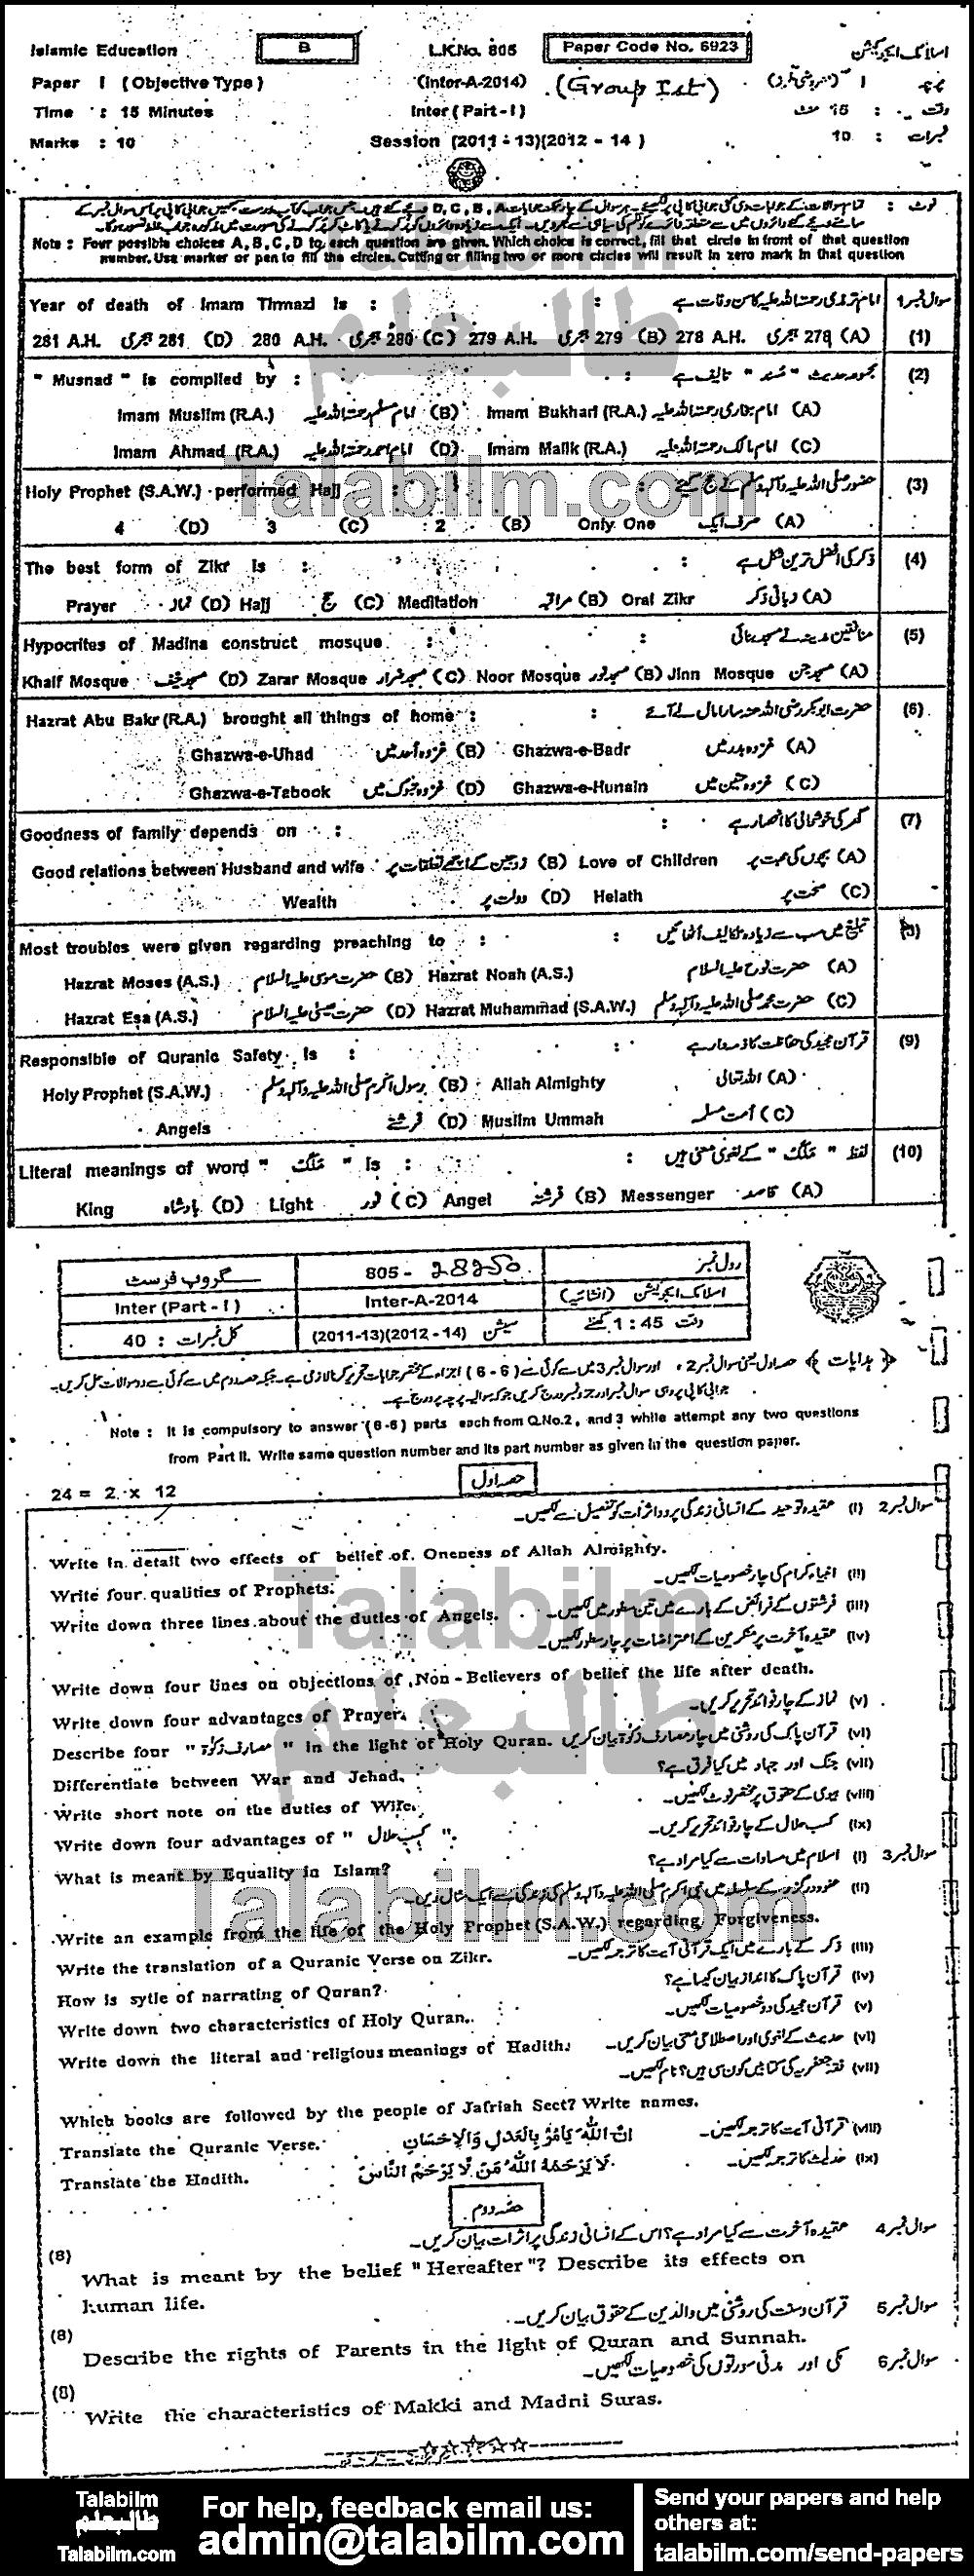 Islamic Education B L.K.No. 805 Paper Code No. 6923 اسلامک ایجوکیشن
Paper I (Objective Type) (Inter-A-2014) (Group Ist) I پرچہ
Time : 15 Minutes Inter (Part-I) وقت : 15 منٹ
Marks : 10 Session (2011-13)(2012-14) نمبرات : 10
نوٹ :
Note : Four possible choices A, B, C, D to each question are given. Which choice is correct, fill that circle in front of that question
number. Use marker or pen to fill the circles. Cutting or filling two or more circles will result in zero mark in that question
Year of death of Imam Tirmazi is : امام ترمذی رحمتہ اللہ علیہ کا سن وفات ہے : سوال نمبر1
281 A.H. 281 ہجری (D) 280 A.H. 280 ہجری (C) 279 A.H. 279 ہجری (B) 278 A.H. 278 ہجری (A) (1)
" Musnad " is complied by : مجموعہ حدیث " مسند " تالیف ہے : (2)
Imam Muslim (R.A.) امام مسلم رحمتہ اللہ علیہ (B) Imam Bukhari (R.A.) امام بخاری رحمتہ اللہ علیہ (A)
Imam Ahmad (R.A.) امام احمد رحمتہ اللہ علیہ (D) Imam Malik (R.A.) امام مالک رحمتہ اللہ علیہ (C)
Holy Prophet (S.A.W.) performed Hajj : حضور صلی اللہ علیہ وآلہ وسلم نے حج کئے : (3)
4 (D) 3 (C) 2 (B) Only One صرف ایک (A)
The best form of Zikr is : ذکر کی افضل ترین شکل ہے : (4)
Prayer نماز (D) Hajj حج (C) Meditation مراقبہ (B) Oral Zikr زبانی ذکر (A)
Hypocrites of Madina construct mosque : منافقین مدینہ نے مسجد بنائی : (5)
Khaif Mosque مسجد خیف (D) Zarar Mosque مسجد ضرار (C) Noor Mosque مسجد نور (B) Jinn Mosque مسجد جن (A)
Hazrat Abu Bakr (R.A.) brought all things of home : حضرت ابوبکر رضی اللہ عنہ سارا مال لے آئے : (6)
Ghazwa-e-Uhad غزوہ احد میں (B) Ghazwa-e-Badr غزوہ بدر میں (A)
Ghazwa-e-Tabook غزوہ تبوک میں (D) Ghazwa-e-Hunain غزوہ حنین میں (C)
Goodness of family depends on : گھر کی خوشحالی کا انحصار ہے : (7)
Good relations between Husband and wife زوجین کے اچھے تعلقات پر (B) Love of Children بچوں کی محبت پر (A)
Wealth دولت پر (D) Helath صحت پر (C)
Most troubles were given regarding preaching to : تبلیغ میں سب سے زیادہ تکالیف اٹھائیں :
Hazrat Moses (A.S.) حضرت موسیٰ علیہ السلام (B) Hazrat Noah (A.S.) حضرت نوح علیہ السلام (A)
Hazrat Esa (A.S.) حضرت عیسیٰ علیہ السلام (D) Hazrat Muhammad (S.A.W.) حضرت محمد صلی اللہ علیہ وآلہ وسلم (C)
Responsible of Quranic Safety is : قرآن مجید کی حفاظت کا ذمہ دار ہے : (9)
Holy Prophet (S.A.W.) رسول اکرم صلی اللہ علیہ وآلہ وسلم (B) Allah Almighty اللہ تعالی (A)
Angels فرشتے (D) Muslim Ummah امت مسلمہ (C)
Literal meanings of word " مَلَک " is : لفظ " مَلَک " کے لغوی معنی ہیں : (10)
King بادشاہ (D) Light نور (C) Angel فرشتہ (B) Messenger قاصد (A)
گروپ فرسٹ 805 - 28250 رول نمبر
Inter (Part-I) Inter-A-2014 اسلامک ایجوکیشن (انشائیہ)
کل نمبرات : 40 سیشن (2011-13)(2012-14) وقت 1:45 گھنٹے
﴿ ہدایات ﴾ حصہ اول یعنی سوال نمبر 2 ، اور سوال نمبر 3 میں سے کوئی سے (6-6) اجزاء کے مختصر جوابات تحریر کرنا لازمی ہے۔ جبکہ حصہ دوم میں سے کوئی سے دو سوالات حل کریں۔
جوابی کاپی پر وہی سوال نمبر اور جزو نمبر درج کریں جو کہ سوالیہ پرچہ پر درج ہے۔
Note : It is compulsory to answer (6-6) parts each from Q.No.2, and 3 while attempt any two questions
from Part II. Write same question number and its part number as given in the question paper.
حصہ اول
24 = 2 x 12
سوال نمبر 2 (i) عقیدہ توحید کے انسانی زندگی پر دو اثرات کو تفصیل سے لکھیں۔
Write in detail two effects of belief of Oneness of Allah Almighty.
(ii) انبیاء کرام کی چار خصوصیات لکھیں۔
Write four qualities of Prophets.
(iii) فرشتوں کے فرائض کے بارے میں تین سطور میں لکھیں۔
Write down three lines about the duties of Angels.
(iv) عقیدہ آخرت پر منکرین کے اعتراضات پر چار سطور لکھیں۔
Write down four lines on objections of Non-Believers of belief the life after death.
(v) نماز کے چار فوائد تحریر کریں۔
Write down four advantages of Prayer.
Describe four " مصارف زکوٰۃ " in the light of Holy Quran. (vi) قرآن پاک کی روشنی میں چار مصارف زکوٰۃ بیان کریں
Differentiate between War and Jehad. (vii) جنگ اور جہاد میں کیا فرق ہے؟
Write short note on the duties of Wife. (viii) بیوی کے حقوق پر مختصر نوٹ لکھیں۔
Write down four advantages of " کسب حلال ". (ix) کسب حلال کے چار فوائد تحریر کریں۔
What is meant by Equality in Islam? سوال نمبر 3 (i) اسلام میں مساوات سے کیا مراد ہے؟
(ii) عفو و درگزر کے سلسلہ میں نبی اکرم صلی اللہ علیہ وآلہ وسلم کی زندگی سے ایک مثال دیں۔
Write an example from the life of the Holy Prophet (S.A.W.) regarding Forgiveness.
Write the translation of a Quranic Verse on Zikr. (iii) ذکر کے بارے میں ایک قرآنی آیت کا ترجمہ لکھیں۔
How is sytle of narrating of Quran? (iv) قرآن پاک کا انداز بیان کیسا ہے؟
Write down two characteristics of Holy Quran. (v) قرآن مجید کی دو خصوصیات لکھیں۔
Write down the literal and religious meanings of Hadith. (vi) حدیث کے لغوی اور اصطلاحی معنی بیان کریں۔
(vii) فقہ جعفریہ کی کتابیں کون سی ہیں؟ نام لکھیں۔
Which books are followed by the people of Jafriah Sect? Write names.
Translate the Quranic Verse. اِنَّ اللّٰهَ يَأمُرُ بِالْعَدلِ وَالْاِحْسَانِ (viii) قرآنی آیت کا ترجمہ لکھیں۔
Translate the Hadith. لَا يَرْحَمُهُ اللّٰهُ مَنْ لَا يَرْحَمُ النَّاسَ (ix) حدیث کا ترجمہ لکھیں۔
حصہ دوم
سوال نمبر 4 عقیدہ آخرت سے کیا مراد ہے؟ اس کے انسانی زندگی پر اثرات بیان کریں۔
(8)
What is meant by the belief " Hereafter "? Describe its effects on
human life.
سوال نمبر 5 قرآن و سنت کی روشنی میں والدین کے حقوق بیان کریں۔
(8)
Describe the rights of Parents in the light of Quran and Sunnah.
سوال نمبر 6 مکی اور مدنی سورتوں کی خصوصیات لکھیں۔
(8)
Write the characteristics of Makki and Madni Suras.
Talabilm
طالبعلم
Talabilm.com
Talabilm
طالبعلم
Talabilm.com
Talabilm
طالبعلم
Talabilm.com
For help, feedback email us:
admin@talabilm.com
Send your papers and help
others at:
talabilm.com/send-papers